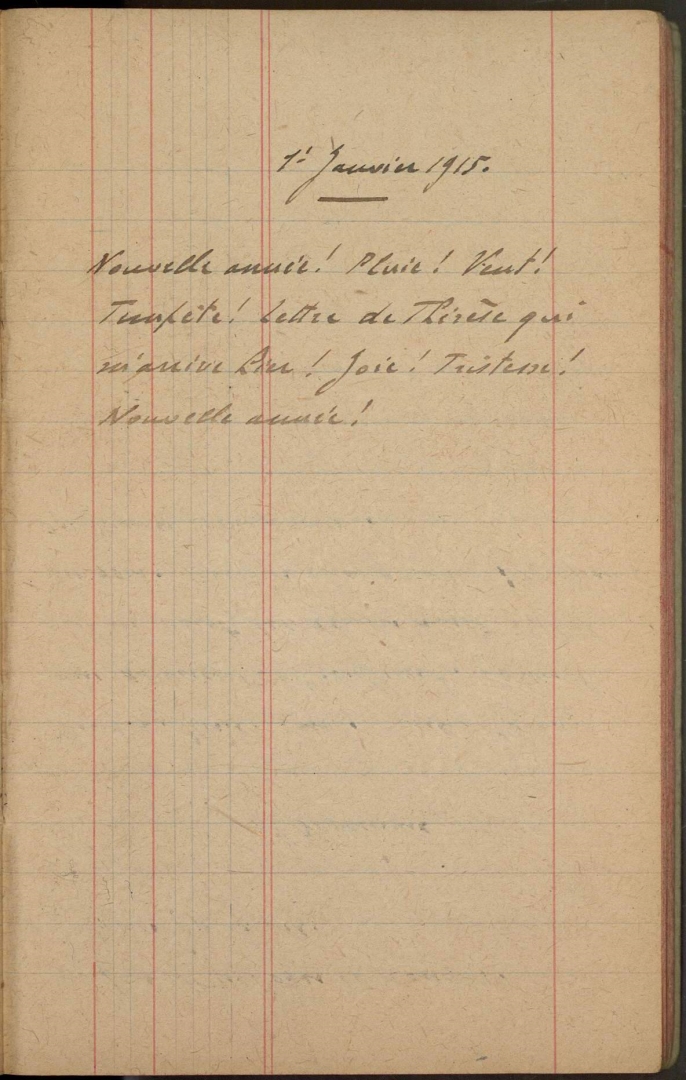 1ᵉʳ Janvier 1915.
Nouvelle année! Pluie! Vent!
Tempête! Lettre de Thérèse qui
m'arrive hier! Joie! Tristesse!
Nouvelle année!